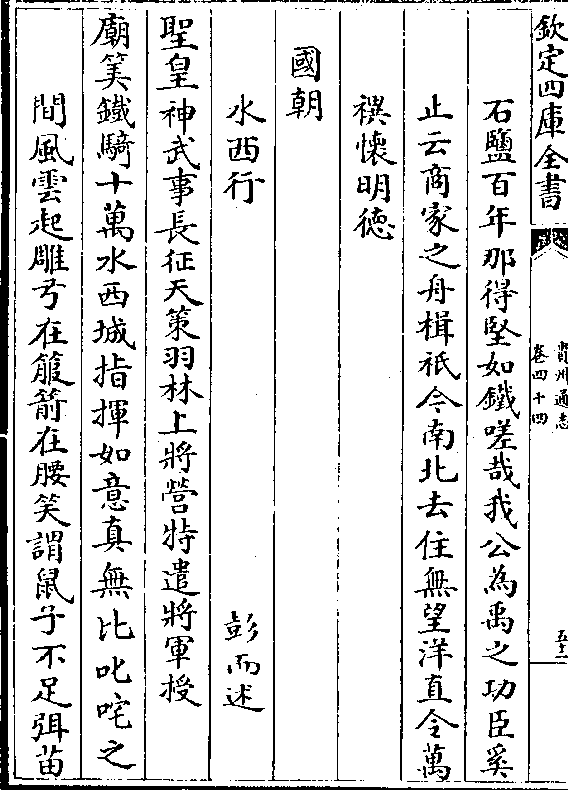 欽定四庫全書
貴州通志
卷四十四
五十二
石鹽百年那得堅如鐵嗟哉我公為禹之功臣奚
止云商家之舟楫祇今南北去住無望洋直令萬
禩懷明德
國朝
水西行 彭而述
聖皇神武事長征天策羽林上將營特遣將軍授
廟筭鐵騎十萬水西城指揮如意真無比叱咤之
間風雲起雕弓在箙箭在腰笑謂鼠子不足弭苗